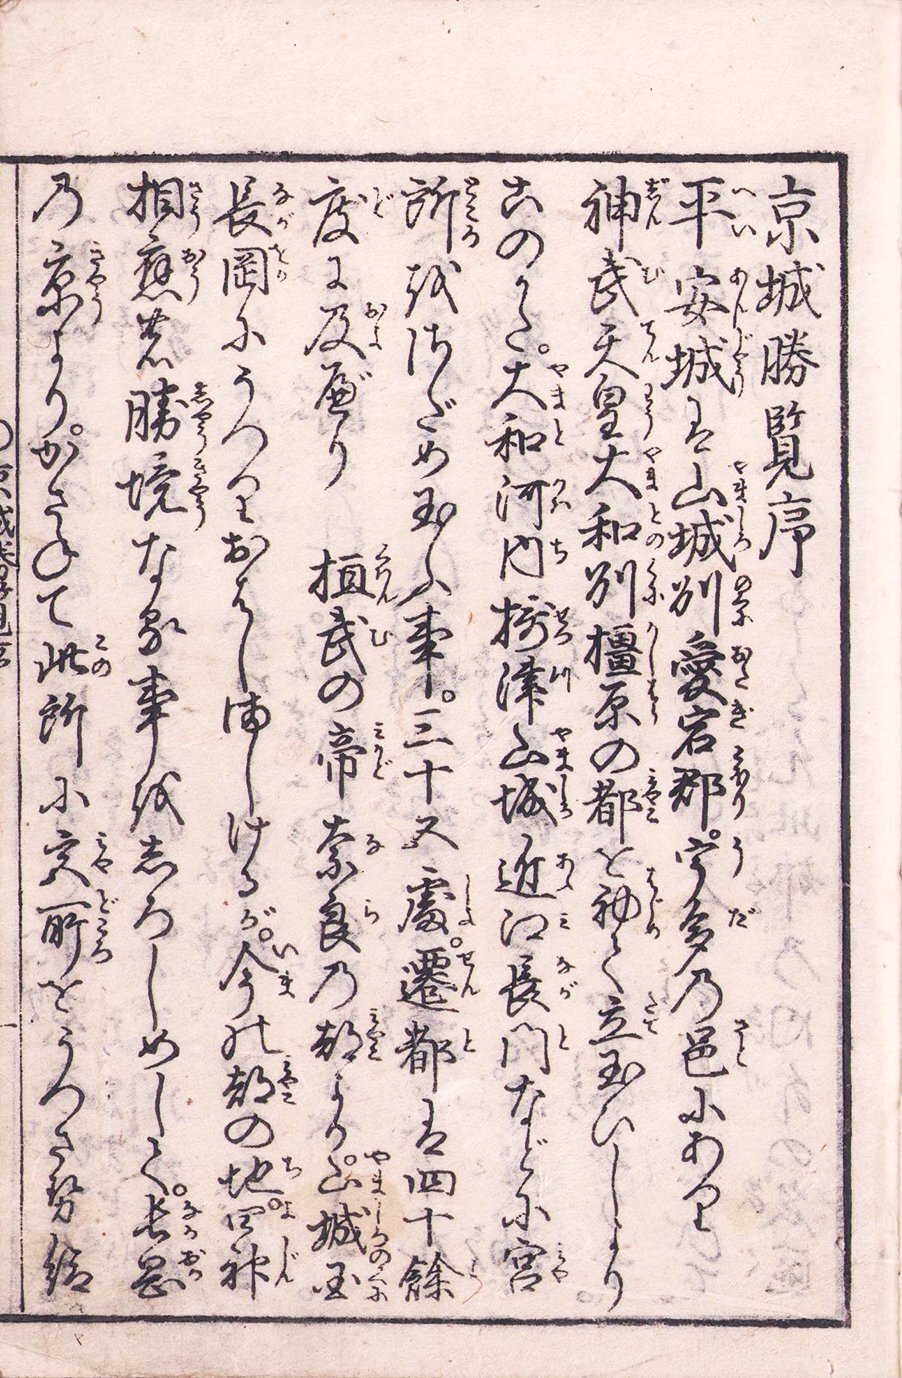 京城勝覧序
平安城は山城州愛宕郡。宇多乃邑にあり
神武天皇大和州橿原の都を初て立玉ひしより。
このかた。大和河内摂津山城近江長門などに宮
所をさだめ玉ふ事。三十又處。遷都は四十餘
度に及べり 桓武の帝奈良乃都より。山城国
長岡にうつりおはしましけるが。今の都の地。四神
相應の勝境なる事をしろしめして。長岡
乃京より。かさねて此所に宮所をうつさせ給